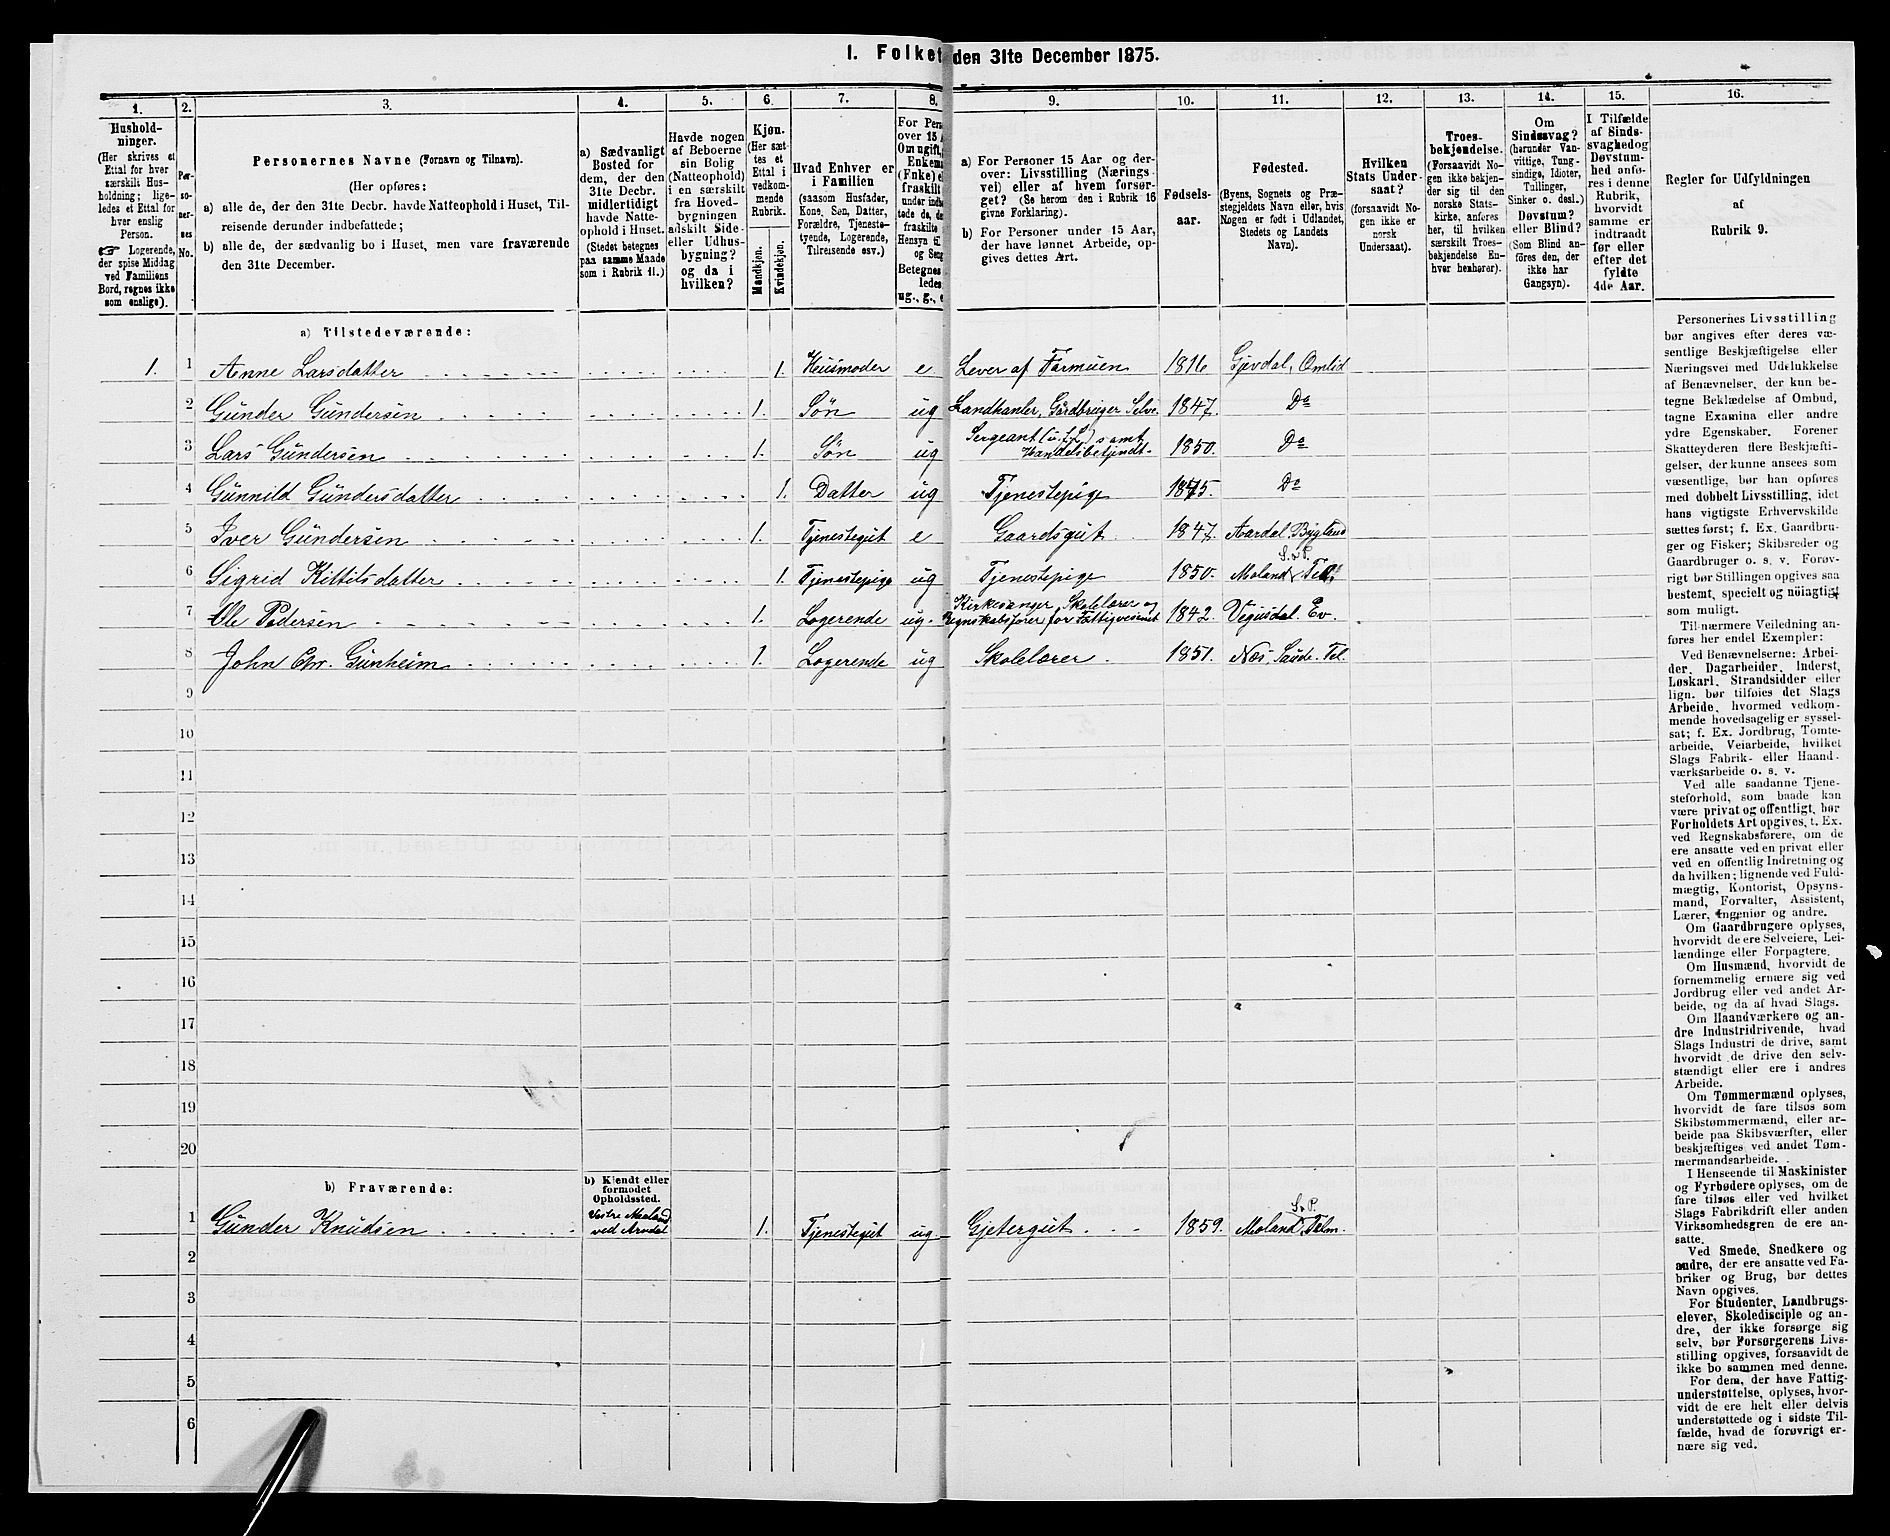 1. Folket den 31te December 1875.
1. 2. 3. 4. 5. 6. 7. 8. 9. 10. 11. 12. 13. 14. 15. 16.
Hushold-
ninger.
(Her skrives et
Ettal for hver
særskilt Hus-
holdning; lige-
ledes et Ettal for
hver enslig
Person.
☞ Logerende,
der spise Middag
ved Familiens
Bord, regnes ikke
som enslige).
Per-
so-
ner-
nes
No.
Personernes Navne (Fornavn og Tilnavn).
(Her opføres:
a) alle de, der den 31te Decbr. havde Natteophold i Huset, Til-
reisende derunder indbefattede;
b) alle de, der sædvanlig bo i Huset, men vare fraværende
den 31te December.
a) Sædvanligt
Bosted for
dem, der den
31te Decbr.
midlertidigt
havde Natte-
ophold i Huset.
(Stedet betegnes
paa samme Maade
som i Rubrik 11.)
Havde nogen
af Beboerne
sin Bolig
(Natteophold)
i en særskilt
fra Hoved-
bygningen
adskilt Side-
eller Udhus-
bygning?
og da i
hvilken?
Kjøn.
(Her sæt-
tes et
Ettal i
vedkom-
mende
Rubrik.
Mandkjøn.
Kvindekjøn.
Hvad Enhver er
i Familien
(saasom Husfader,
Kone, Søn, Datter,
Forældre, Tjenestø-
tyende, Logerende,
Tilreisende osv.)
For Pers
over 15 A
Om ugift,
Enkem
(Fnke) e
fraskilt
under indbe
tede de, de
fraskilte
Hensyn til
og Seng
Betegnes
ledes
ug., g., e
a) For Personer 15 Aar og der-
over: Livsstilling (Nærings-
vei) eller af hvem forsør-
get? (Se herom den i Rubrik 16
givne Forklaring).
b) For Personer under 15 Aar,
der have lønnet Arbeide, op-
gives dettes Art.
Fødsels-
aar.
Fødested.
(Byens, Sognets og Præ-
stegjeldets Navn eller, hvis
Nogen er født i Udlandet,
Stedets og Landets
Navn).
Hvilken
Stats Under-
saat?
(forsaavidt No-
gen ikke er
norsk
Undersaat).
Troes-
bekjendelse.
(Forsaavidt No-
gen ikke bekjen-
der sig til den
norske Stats-
kirke, anføres
her, til hvilken
særskilt Troes-
bekjendelse En-
hver henhører).
Om
Sindssvag?
(herunder Van-
vittige, Tung-
sindige, Idioter,
Tullinger,
Sinker o. desl.)
Døvstum?
eller Blind?
(Som Blind an-
føres den, der
ikke har
Gangsyn).
I Tilfælde
af Sinds-
svaghed og
Døvstum-
hed anfø-
res i denne
Rubrik,
hvorvidt
samme er
indtraadt
før eller
efter det
fyldte
4de Aar.
Regler for Udfyldningen
af
Rubrik 9.
a) Tilstedeværende:
1. 1 Anne Larsdatter 1. Husmoder e Lever af Formuen 1816 Gjøvdal, Omlid
2 Gunder Gundersen 1. Søn ug Landhanler, Gårdbruger Selve. 1847. Do
3 Lars Gundersen 1. Søn ug Sergeant (u. f. L) samt
Handelsbetjendt 1850. Do
4 Gunnild Gundersdatter 1. Datter ug Tjenestepige 1845. Do
5 Iver Gundersen 1. Tjenestegut e Gaardsgut 1847. Aardal Bygland
6 Sigrid Kittilsdatter 1. Tjenestepige ug Tjenestepige 1850. Moland S. P. Tel.
7 Ole Pedersen 1. Logerende ug. Kirkesanger, Skolelærer og
Regnskabsfører for Fattigvesenet 1842. Vegusdal. Ev.
8 John Chr. Gunheim 1. Logerende ug Skolelærer 1851. Næs, Saude. Tel.
9
10
11
12
13
14
15
16
17
18
19
20
b) Fraværende:
b) Kjendt eller
formodet
Opholdssted.
1 Gunder Knudsen Vestre Moland
ved Arndal 1. Tjenestegut ug. Gjetergut 1859. Moland S. P. Telm.
2
3
4
5
6
Personernes Livsstilling
bør angives efter deres væ-
sentlige Beskjæftigelse eller
Næringsvei med Udelukkelse
af Benævnelser, der kun be-
tegne Beklædelse af Ombud,
tagne Examina eller andre
ydre Egenskaber. Forener
Skatteyderen flere Beskjæfti-
gelser, der kunne ansees som
væsentlige, bør han opføres
med dobbelt Livsstilling, idet
hans vigtigste Erhvervskilde
sættes først; f. Ex. Gaardbru-
ger og Fisker; Skibsreder og
Gaardbruger o. s. v. Forøv-
rigt bør Stillingen opgives saa
bestemt, specielt og nøiagtigt
som muligt.
Til nærmere Veiledning an-
føres her endel Exempler:
Ved Benævnelserne: Arbei-
der, Dagarbeider, Inderst,
Løskarl, Strandsidder eller
lign. bør tilføies det Slags
Arbeide, hvormed vedkom-
mende hovedsagelig er syssel-
sat; f. Ex. Jordbrug, Tomte-
arbeide, Veiarbeide, hvilket
Slags Fabrik- eller Haand-
værksarbeide o. s. v.
Ved alle saadanne Tjene-
steforhold, som baade kan
være privat og offentligt, bør
Forholdets Art opgives, t. Ex.
ved Regnskabsførere, om de
ere ansatte ved en privat eller
ved en offentlig Indretning og
da hvilken; lignende ved Fuld-
mægtig, Kontorist, Opsyns-
mand, Forvalter, Assistent,
Lærer, Ingeniør og andre.
Om Gaardbrugere oplyses,
hvorvidt de ere Selveiere, Lei-
lændinge eller Forpagtere.
Om Husmænd, hvorvidt de
fornemmelig ernære sig ved
Jordbrug eller ved andet Ar-
beide, og da af hvad Slags.
Om Haandværkere og an-
dre Industridrivende, hvad
Slags Industri de drive, samt
hvorvidt de drive den selv-
stændigt eller ere i andres
Arbeide.
Om Tømmermænd oplyses,
hvorvidt de fare tilsøs som
Skibstømmermænd, eller ar-
beide paa Skibsværfter, eller
beskjæftiges ved andet Tøm-
mermandsarbeide.
I Henseende til Maskinister
og Fyrbødere oplyses, om de
fare tilsøs eller ved hvilket
Slags Fabrikdrift eller anden
Virksomhedsgren de ere an-
satte.
Ved Smede, Snedkere og
andre, der ere ansatte ved Fa-
briker og Brug, bør dettes
Navn opgives.
For Studenter, Landbrugs-
elever, Skoledisciple og an-
dre, der ikke forsørge sig
selv, bør Forsørgerens Livs-
stilling opgives, forsaavidt de
ikke bo sammen med denne.
For dem, der have Fattig-
understøttelse, oplyses, hvor-
vidt de ere helt eller delvis
understøttede og i sidste Til-
fælde, hvad de forøvrigt er-
nære sig ved.